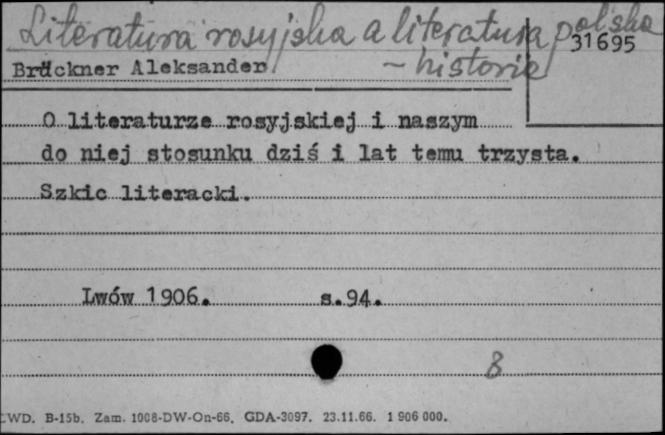 Literatura rosyjska a literatura polska
31695
Brückner Aleksander
- historia
O literaturze rosyjskiej i naszym
do niej stosunku dziś i lat temu trzysta.
Szkic literacki.
Lwów 1906. s.94.
8
WD. B-15b. Zam. 1008-DW-On-66. GDA-3097. 23.11.66. 1 906 000.